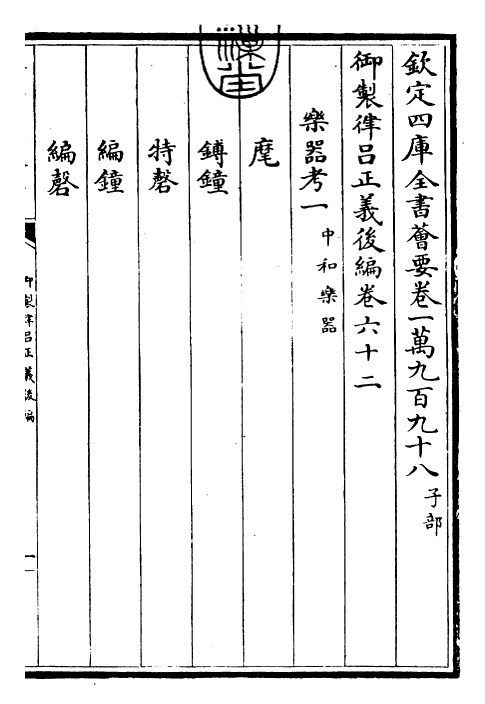 欽定四庫全書薈要卷一萬九百九十八 子部
御製律呂正義後編卷六十二
樂器考一 中和樂器
麾
鎛鐘
特磬
編鐘
編磬
御製律呂正義後編
一